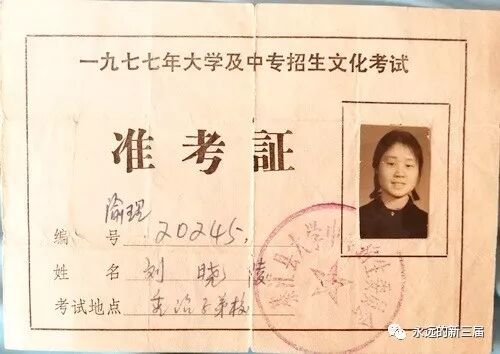 一九七七年大学及中专招生文化考试
准考証
编号 20245
姓名 刘晓陵
考试地点 子弟校
永远的新三届